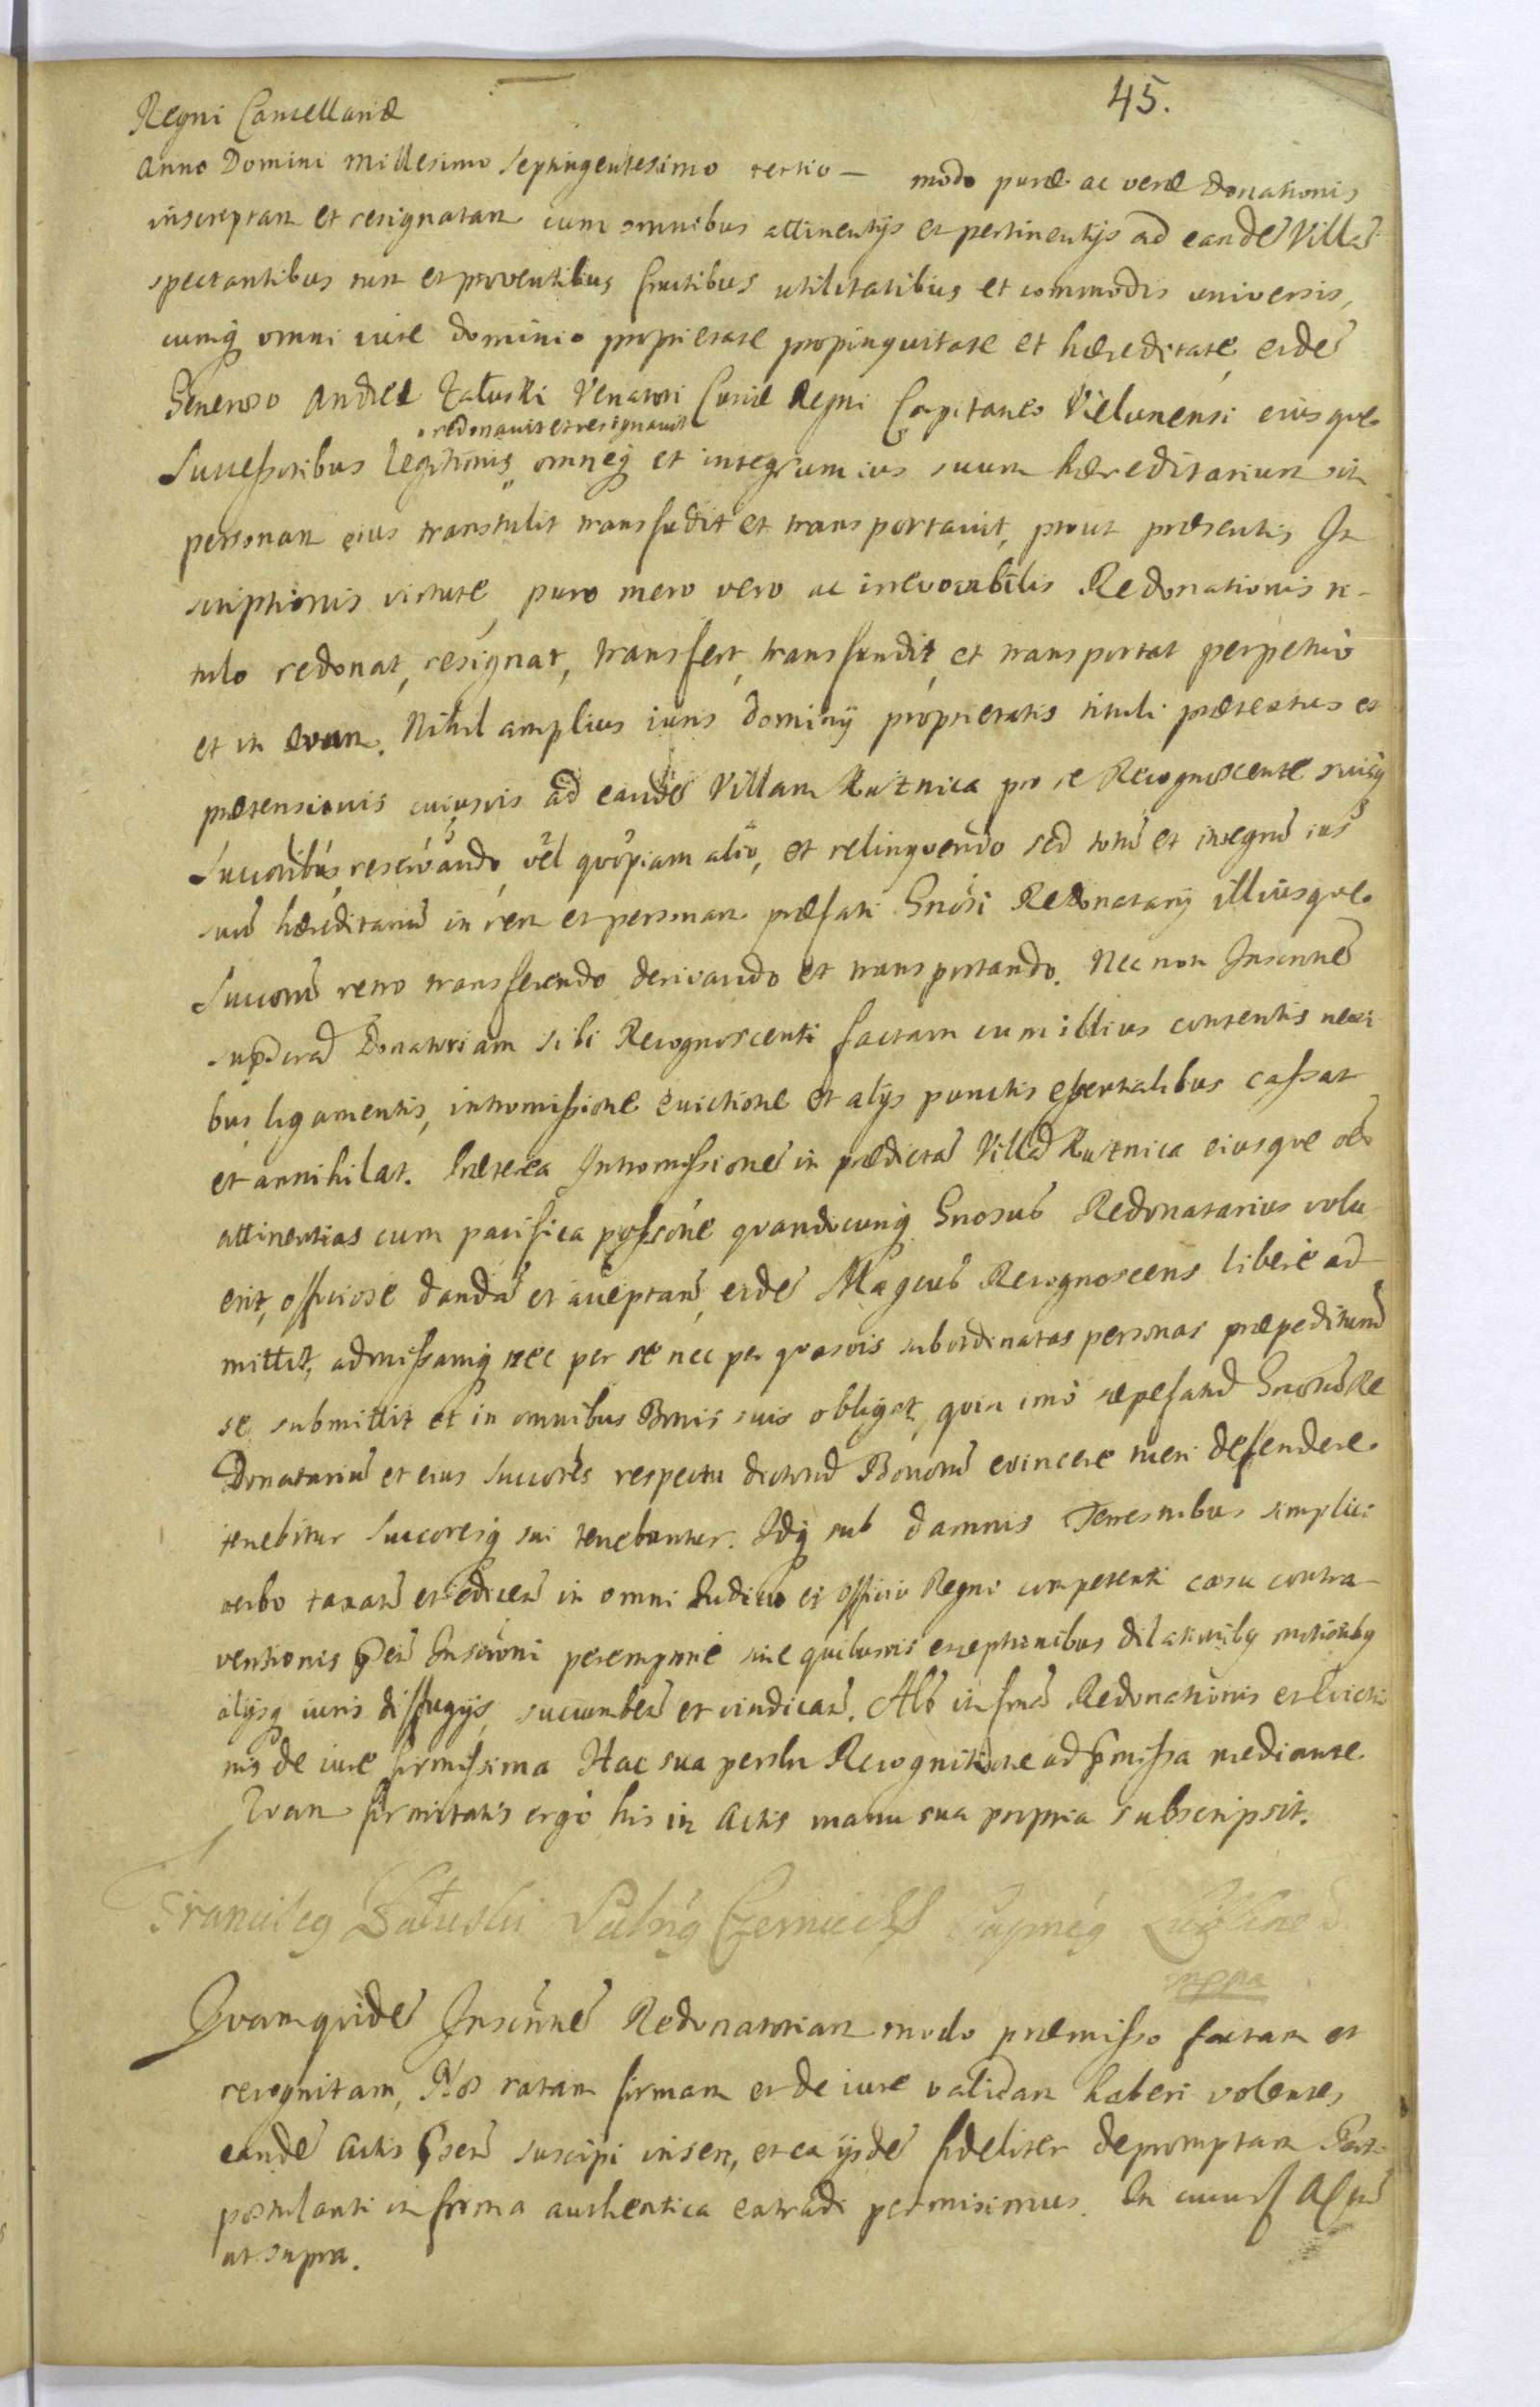 45.
Regni Cancellariæ
Anno Domini Millesimo Septingentesimo tertio — modo puræ ac veræ Donationis
inscreptam et resignatam cum omnibus attinentijs et pertinentijs ad eandẽ Villã
spectantibus et proventibus fructibus utilitatibus et commodis universis,
cumq omni iure dominio proprietate propinquitate et hæreditate, eidẽ
Generoso Andreæ Załuski Venatori Curiæ Regni Capitaneo Vielunensi eiusque
redonavit et resignavit
Successoribus legitimis omneq et integrum ius suum hæreditarium in
personam eius transtulit transfudit et transportavit, prout præsentis In
scriptionis virtute, puro mero vero ac irrevocabilis Redonationis ti-
tulo redonat, resignat, transfert, transfundit, et transportat perpetuò
et in ævum. Nihil amplius iuris dominij proprietatis tituli prætextus et
prætensionis cuiusvis ad eandẽ Villam Ruznica pro se Recognoscente suisq
Succoribus reservando, vel quopiam alio, et relinquendo sed totũ et integrũ ius
suũ hæreditariũ in rem et personam præfati Gnosi Redonatarij illiusque
Succorũ retro transferendo derivando et transportando. Nec non Inscrnẽ
Donatoriam sibi Recognoscenti factam cum illius contentis nexi
bus ligamentis, intromissione evictione et alijs punctis essentialibus cassat
et annihilat. Præterea Intromissionẽ in prædictã Villã Ruznica eiusque oẽs
attinentias cum pacifica possõne quandocunq Gnosus Redonatarius volu
erit, officiose dandã et acceptanã, eidẽ Magcus Recognoscens liberè ad
mittit, admissamq nec per se nec per quasvis subordinatas personas præpeditum
se submittit et in omnibus Bonis suis obligat, quin imò sæpefatũ Gnosũ Re
Donatariũ et eius Succorẽs respectu dictorũ Bonorũ evincere tueri defendere
tenebitur Succoresq sui tenebuntur. Idq sub damnis Terrestribus simplici
verbo taxanã et edicenã in omni Iudicio et officio Regni competenti casu contra
ventionis Inscrõni peremptorie sine quibusvis exceptionibus dilationibq motionibq
alijsq iuris diffugijs, succumbenã et vindicanã. Als in frmã Redonationis et Evictio
nis de iure firmissima Hac sua personali Recognitione ad præmissa mediante
Quam firmitatis ergò his in Actis manu sua propria subscripsit.
Francisscq Załuski Czerniech
mppria
Quamquidẽ Inscrnẽ Redonatoriam modo præmisso factam et
recognitam, Nos ratam firmam et de iure validam haberi volentes
eandẽ Actis suscipi inseri, et ex ijsdẽ fideliter depromptam Parti
postulanti in forma authentica extradi permisimus. In cuius
ut supra.